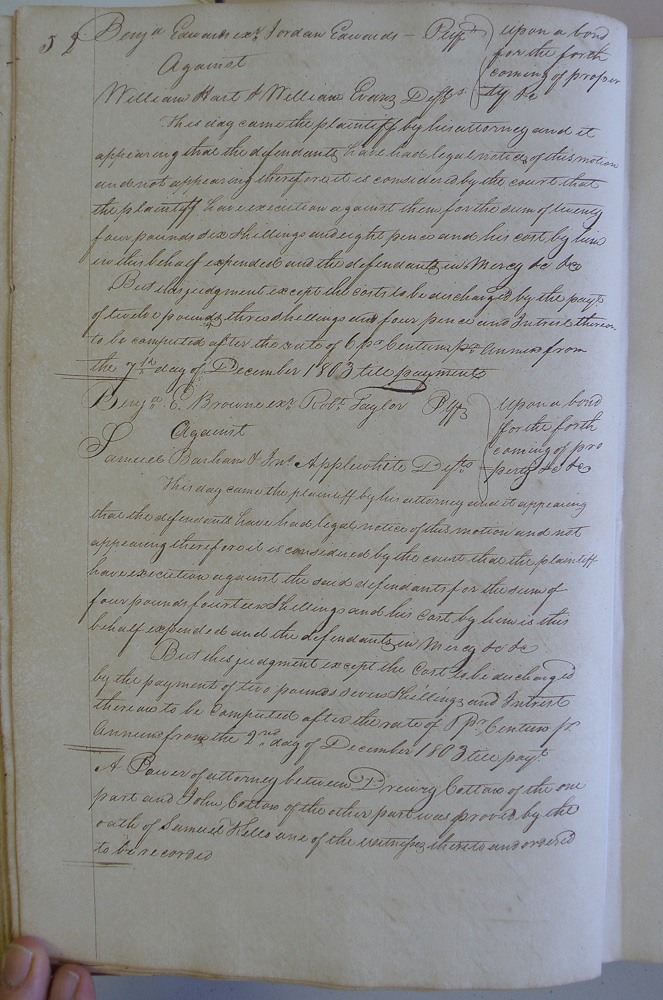 52 Benja Edwards exr Jordan Edwards – Plff
Against
William Hart & William Evans Defts
upon a bond
for the forth
coming of proper
ty &c
This day came the plaintiff by his attorney and it
appearing that the defendants have had legal notice of this motion
and not appearing therefore it is considered by the court that
the plaintiff have execution against them for the sum of twenty
four pounds six shillings and eight pence and his cost by him
in this behalf expended and the defendants in Mercy &c &c
But this judgment except the costs to be discharged by the payt
of twelve pounds three shillings and four pence and Intrest thereon
to be computed after the rate of 6 pr Centum pr Annum from
the 7th day of December 1803 till payment
Benja E. Browne exr Robt Taylor Plff
Against
Samuel Barham & Jno Applewhite Defts
upon a bond
for the forth
coming of pro
perty &c &c
This day came the plaintiff by his attorney and it appearing
that the defendants have had legal notice of this motion and not
appearing therefore it is considered by the court that the plaintiff
have execution against the said defendants for the sum of
four pounds fourteen shillings and his cost by him in this
behalf expended and the defendants in Mercy &c &c
But this judgment except the Cost to be discharged
by the payment of two pounds seven shillings and Intrest
thereon to be computed after the rate of pr Centum pr
Annum from the 2nd day of December 1803 till payt
A Power of attorney between Drewry Cotton of the one
part and John Cotton of the other part was proved by the
oath of Samuel one of the witnesses thereto and ordered
to be recorded